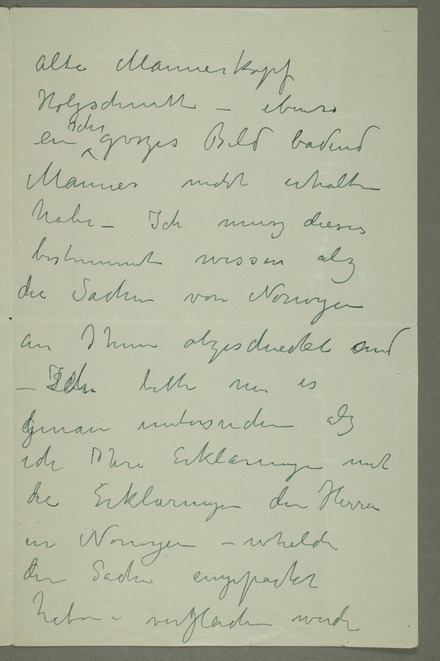 alte Mannerkopf
Holzschnitt – ebenso
ein sehr groszes Bild badend
Mannes nicht erhalten
habe – Ich musz dieses
bestimmt wissen alz
die Sachen von Norwegen
an Ihnen abgeschickt sind
– Ich bitte nun es
genau untersuchen alz
ich Ihre Erklarungen mit
die Erklarungen der Herren
in Norwegen – whelche
die Sachen eingepackt
haben – vergleichen werde